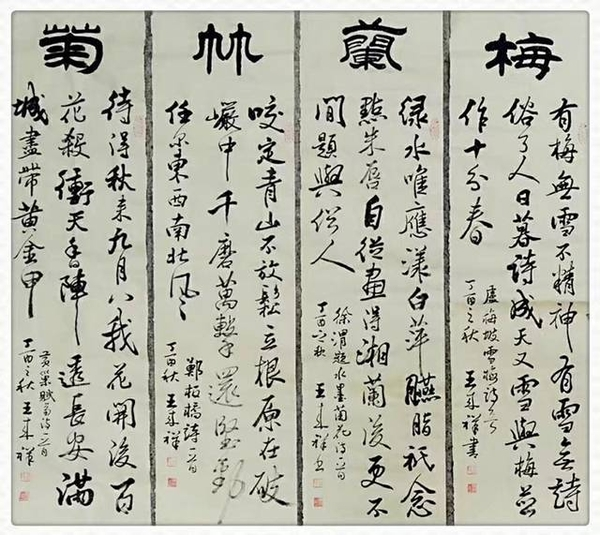 梅
有梅無雪不精神有雪無詩
俗了人日暮詩成天又雪與梅並
作十分春
盧梅坡雪梅诗
丁酉之秋 王来祥書
蘭
绿水唯應漾白萍臙脂衹念
點朱唇自從畫得湘蘭後更不
閒題與俗人
徐渭題水墨蘭花诗一首
丁酉之秋 王来祥书
竹
咬定青山不放鬆立根原在破
巖中千磨萬擊還堅勁
任尔東西南北风
鄭板橋詩一首
丁酉秋 王来祥
菊
待得秋来九月八我花開後百
花殺衝天香陣透長安滿
城盡帶黄金甲
黄巢賦菊诗一首
丁酉之秋 王来祥